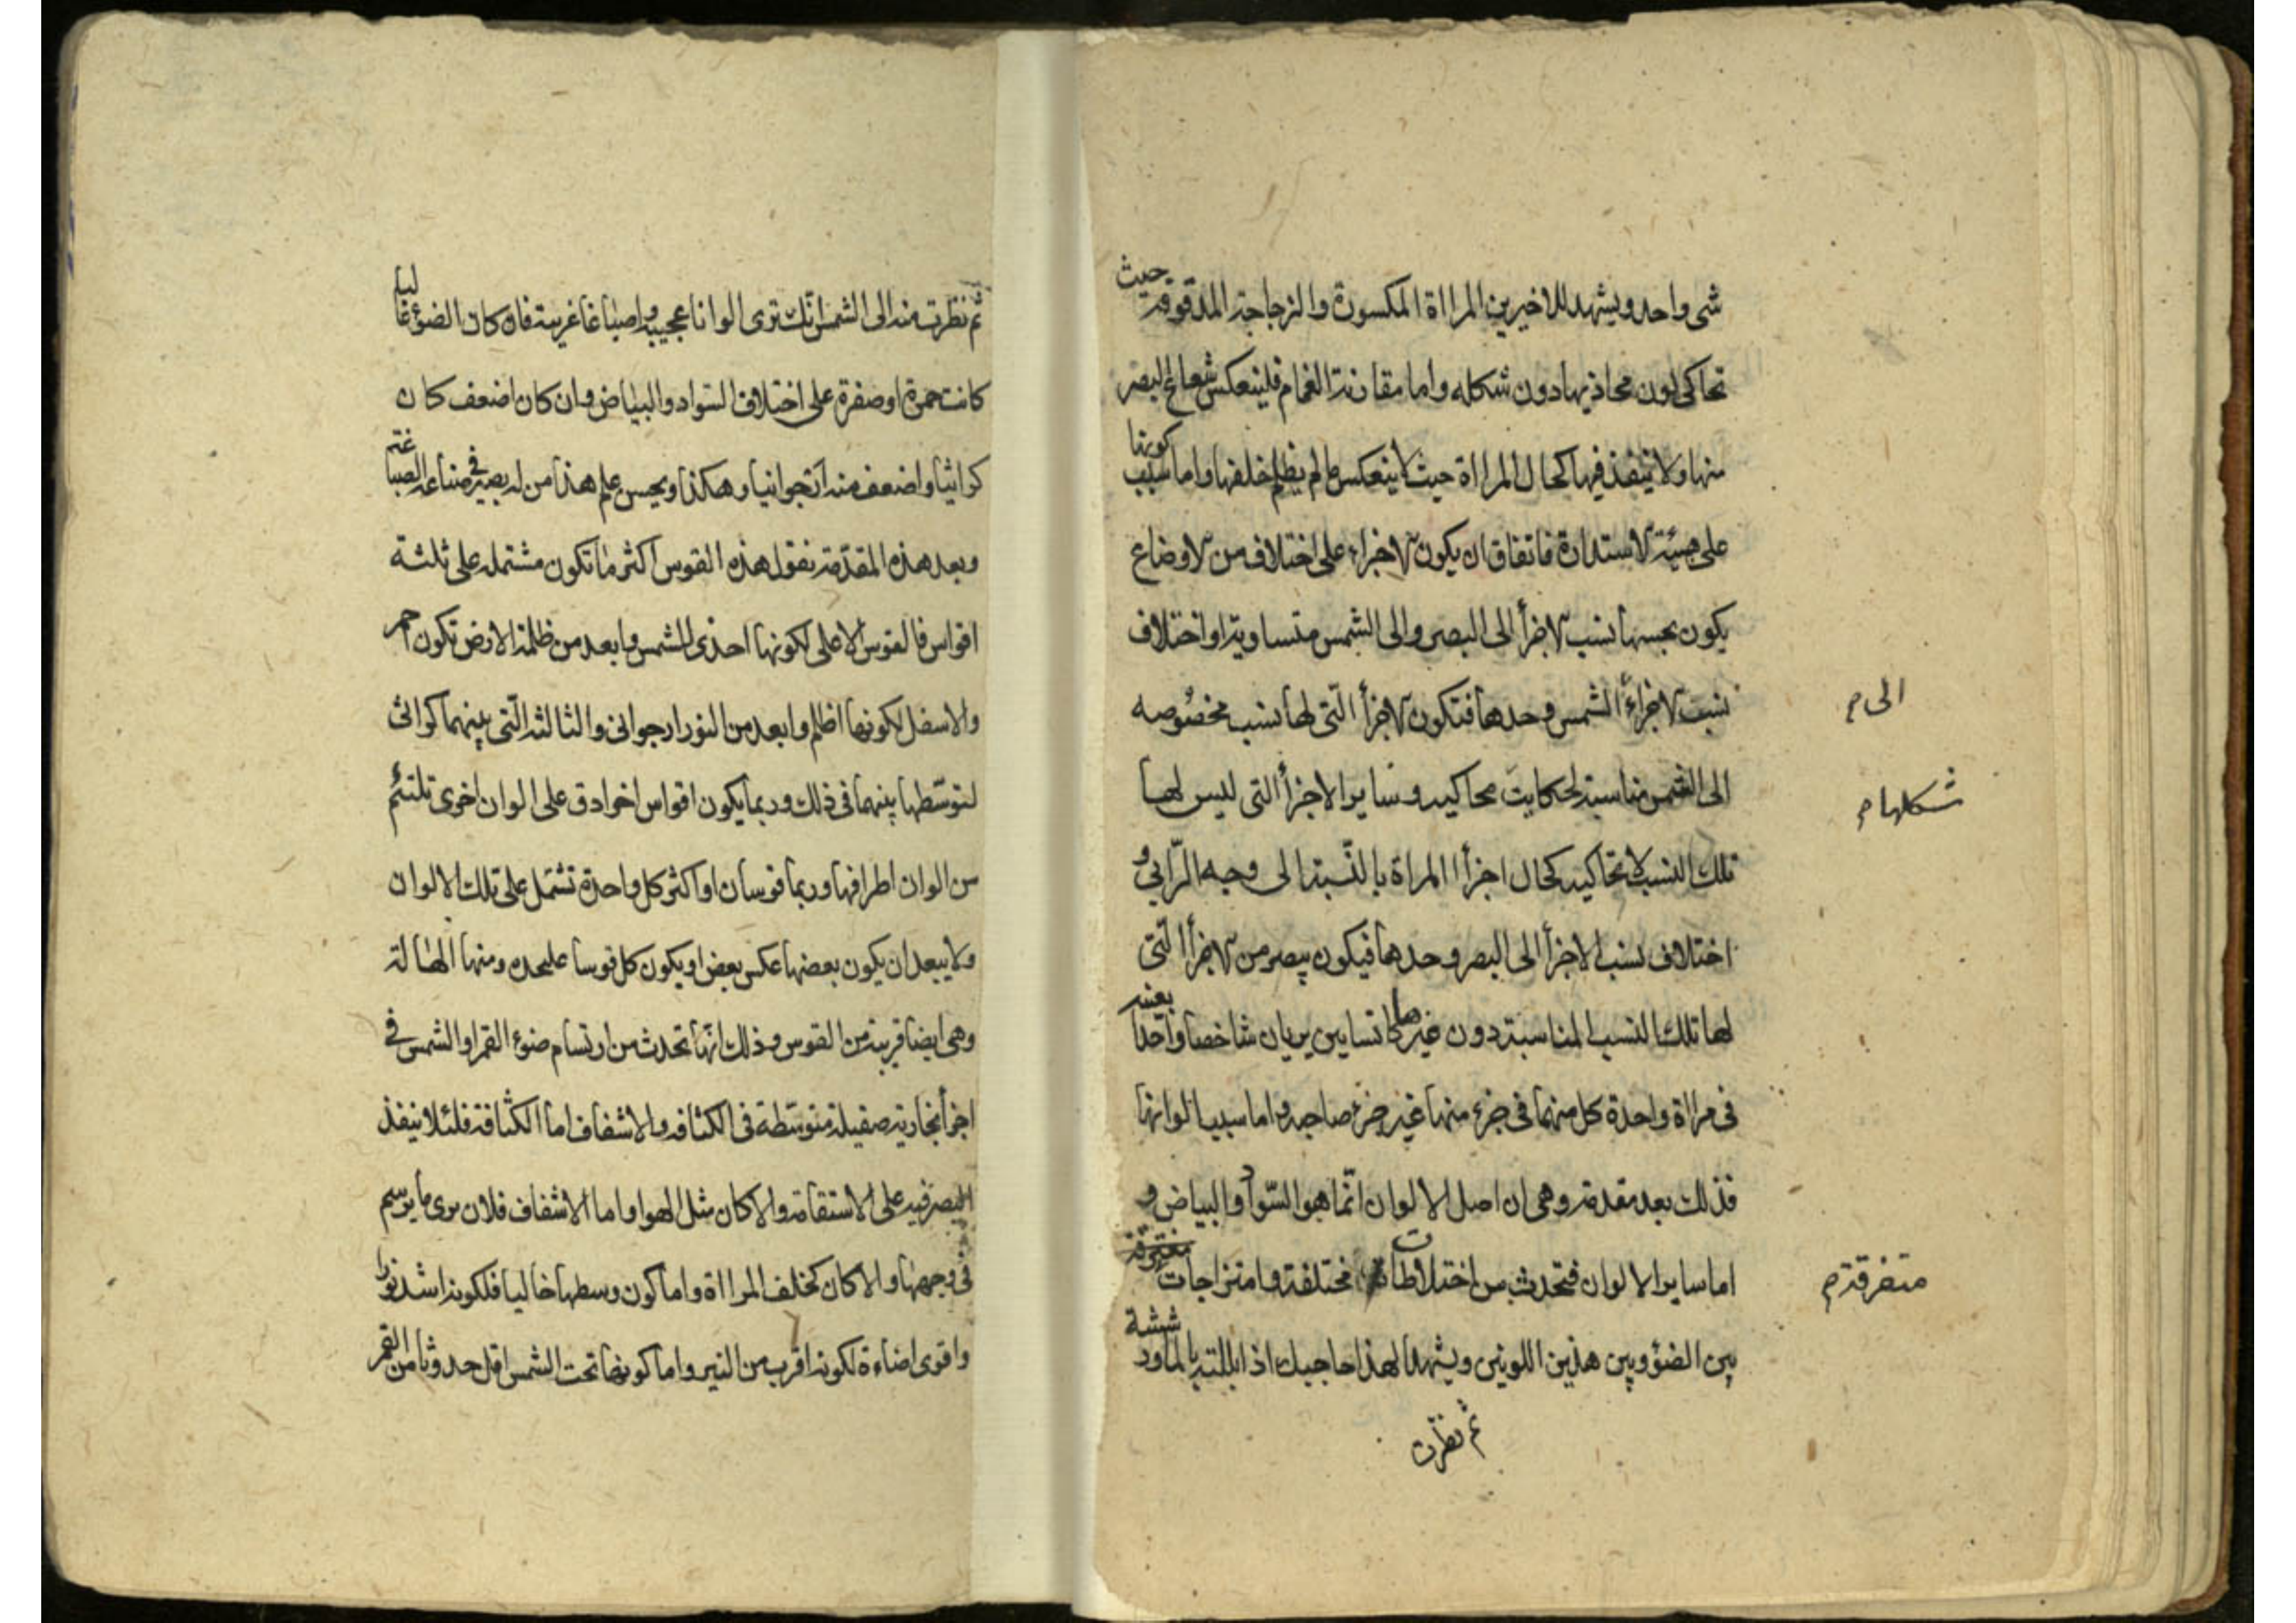 شى واحد ويشهد للاخيرين المرااة المكسورة والزجاجة المدقوقة حيث
تحاكى لون محاذيها دون شكله واما مقارنة الغمام فلينعكس شعاع البصر
منها ولا ينفذ فيها كحال المرااة حيث لا ينعكس ما لم يظلم خلفها واما سبب كونها
على هيئة الاستدارة فاتفاق ان يكون الاجزاء على اختلاف من الاوضاع
يكون بحسبها نسب الاجزأ الى البصر والى الشمس متساوية او اختلاف
نسبت الاجزاء الشمس وحدها فتكون الاجزأ التى لها نسب مخصوصه
الى م
الى الشمس مناسبة لحكايت محاكيه وساير الاجزأ التى ليس لها
شكلها م
تلك النسب لا تحاكيه كحال اجزأ المراة بالنسبة الى وجه الرّايى و
اختلاف نسب الاجزأ الى البصر وحدها فيكون يبصر من الاجزأ التى
لها تلك النسب المناسبة دون غيرها كانسايين يريان شاخصا واحدا بعينه
فى مرااة واحدة كل منهما فى جزء منها غير جزء صاحبه واما سبب الوانها
فذلك بعد مقدمة وهى ان اصل الالوان انّما هو السّواد والبياض و
اما ساير الالوان فتحدث من اختلاطات مختلفة وامتزاجات
متفرقة م
بين الضوٕ وبين هذين اللونين ويشهد لهذا حاجبك اذا بللته بالماورد ششة
ثم نظرت
ثم نظرت منه الى الشمس انّك ترى الوانا عجيبه واصباغا غريبة فان كان الضوٕ غالبا
كانت حمرة او صفرة على اختلاف السّواد والبياض وان كان اضعف كان
كراثيا واضعف منه ارجوانيا وهكذا ويحسن علم هذا من له بصيرة فى صناعة الصباغة
وبعد هذه المقدّمة نقول هذه القوس اكثر ما تكون مشتمله على ثلثة
اقواس فالقوس الاعلى لكونها احذى للشمس وابعد من ظلمة الارض تكون احمر
والاسفل لكونها اظلم وابعد من النور ارجوانى والثالثه الّتى بينهما كراثى
لتوسّطها بينهما فى ذلك وربما يكون اقواس اخر ادق على الوان اخرى تلتئم
من الوان اطرافها وربما قوسان او اكثر كل واحدة تشتمل على تلك الالوان
ولا يبعد ان يكون بعضها عكس بعض او يكون كل قوسا عليحده ومنها الهالة
وهى ايضا قريبة من القوس وذلك انّها تحدث من ارتسام ضوء القمر او الشمس فى
اجزأ بخارية صقيلة متوسّطة فى الكثافه والاشفاف اما الكثافة فلئلا ينفذ
البصر فيه على الاستقامة والا كان مثل الهوا واما الاشفاف فلان يرى ما يرسم
فى وجهها والا كان كخلف المرااة واما كون وسطها خاليا فلكونه اشد نورا
واقوى اضاءة لكونه اقرب من النير واما كونها تحت الشمس اقل حدوثا من القمر